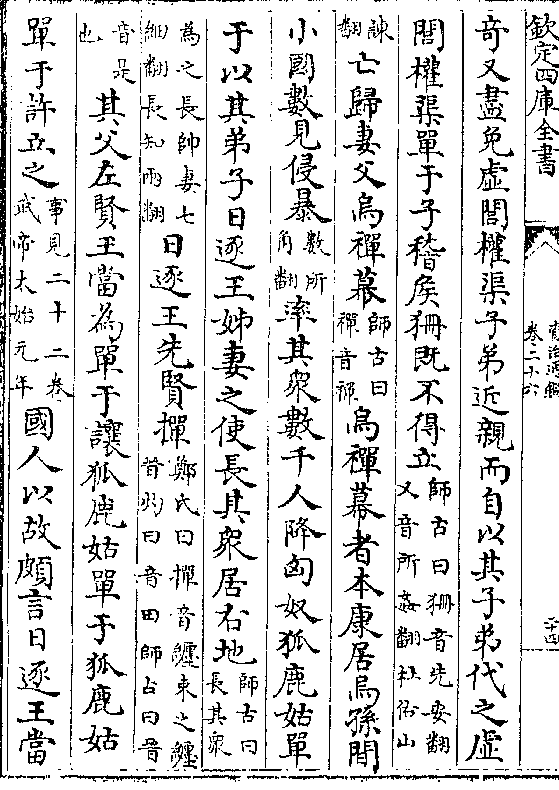 欽定四庫全書
奇又盡免虛閭權渠子弟近親而自以其子弟代之虛
閭權渠單于子稽侯狦既不得立師古曰狦音先安翻又音所姦翻杜佑山
諫翻亡歸妻父烏禪幕師古曰禪音禪烏禪幕者本康居烏孫間
小國數見侵暴數所角翻率其衆數千人降匈奴狐鹿姑單
于以其弟子日逐王姊妻之使長其衆居右地師古曰長其衆
為之長帥妻七細翻長知兩翻日逐王先賢撣鄭氏曰撣音纏束之纏晉灼曰音田師古曰晉
音是也其父左賢王當為單于讓狐鹿姑單于狐鹿姑
單于許立之事見二十二卷武帝太始元年國人以故頗言日逐王當
卷二十六
二十四